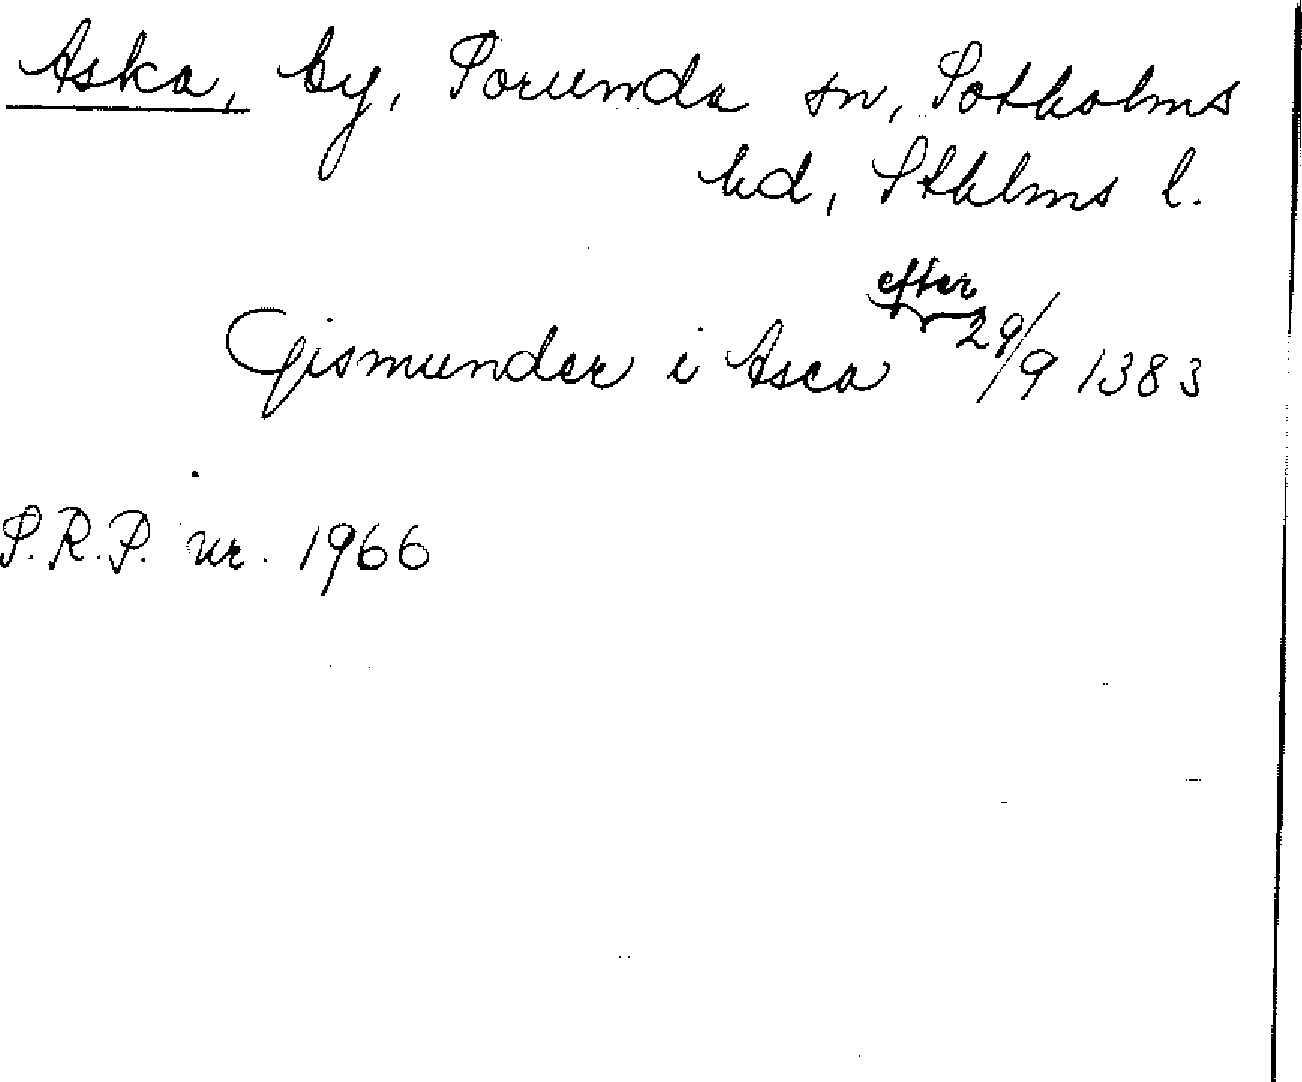 Aska, by, Sorunda sn, Sotholms
hd, Sthlms l.
efter
Gismunder i Asca 29/9 1383
S.R.P. nr. 1966